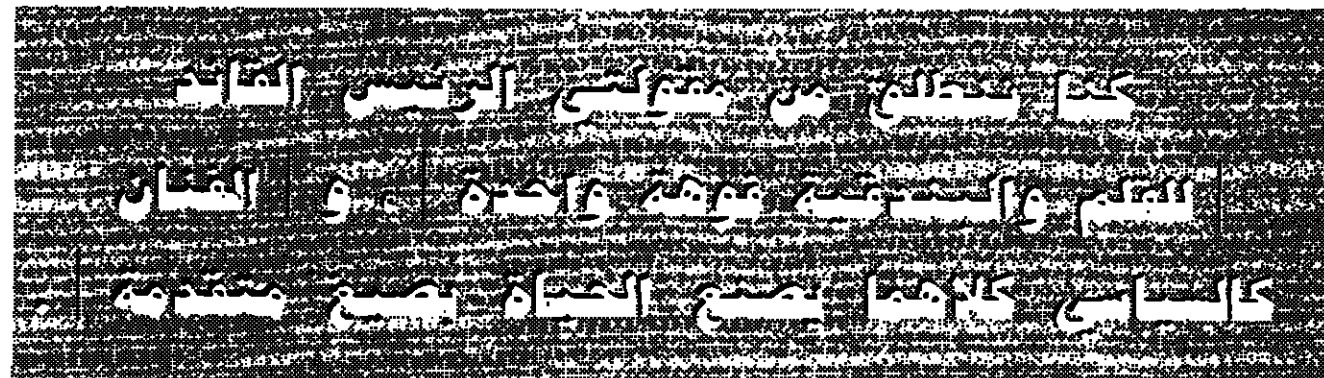 كنا ننطلق من مقولتي الرئيس القائد
| للقلم والبندقية فوهة واحدة | . و | الفنان
كالسياسي كلاهما يصنع الحياة بصيغ متقدمة | .